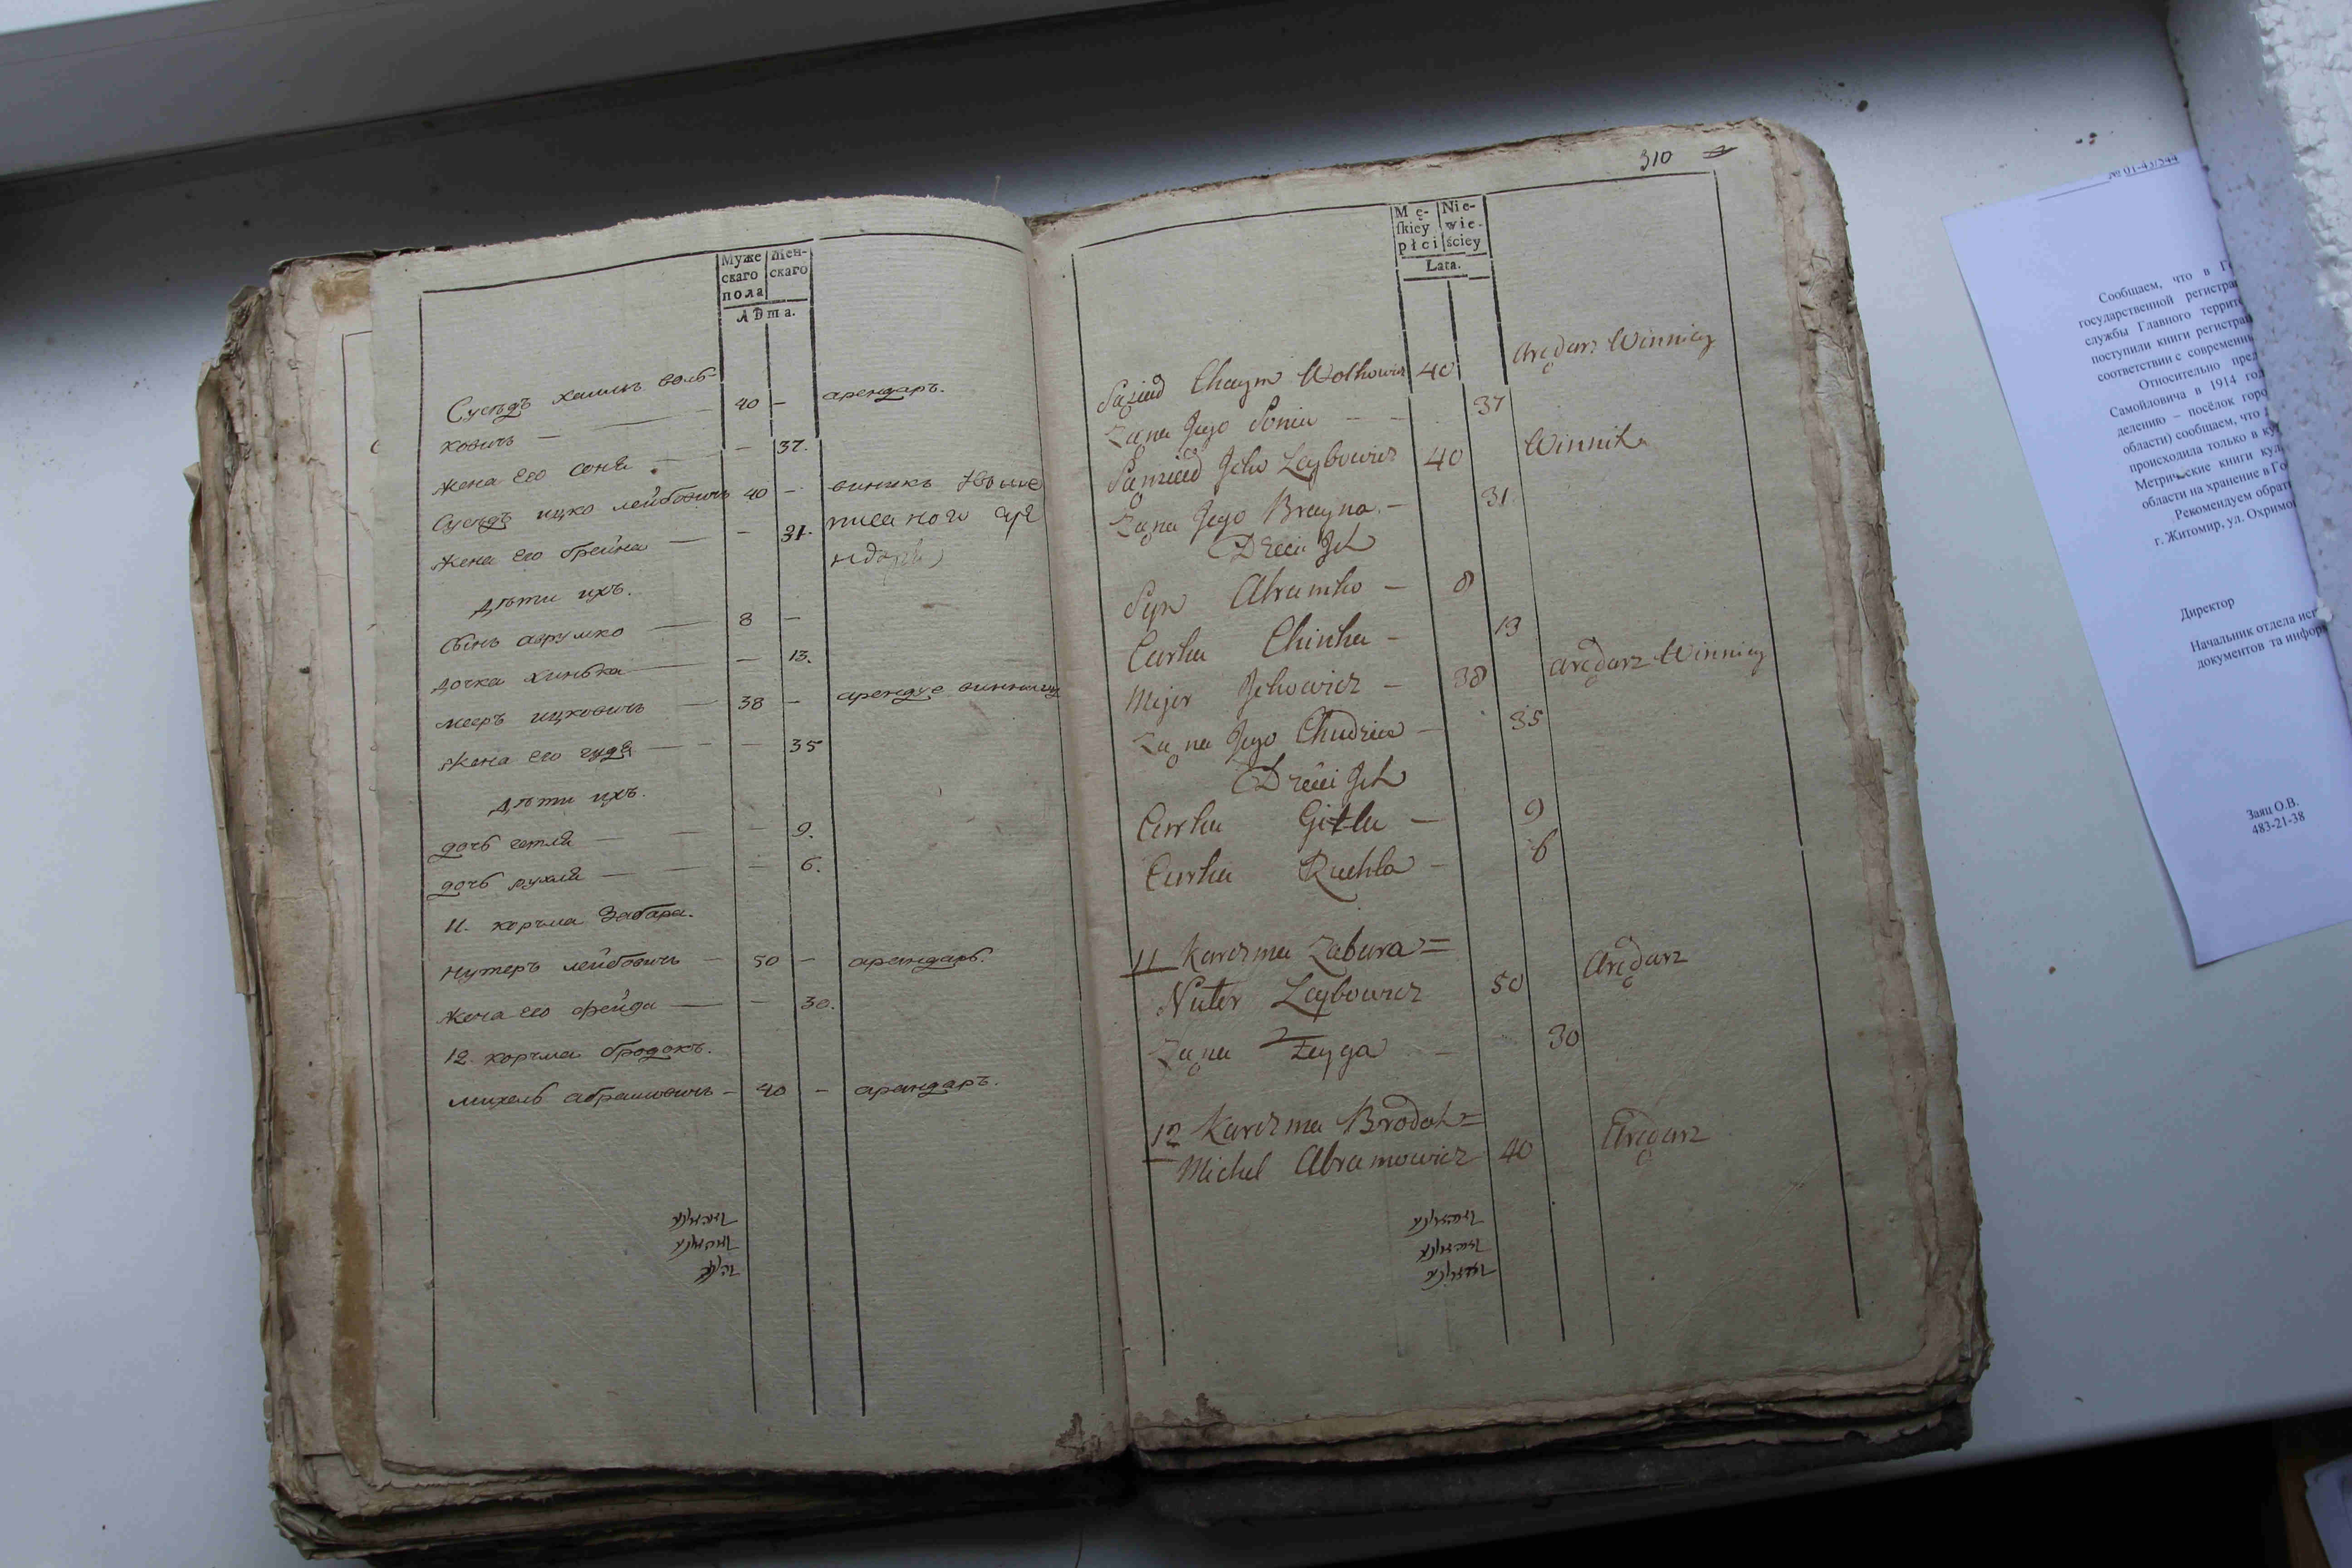 Муже
скаго
пола
Жен-
скаго
Лѣта.
Сусѣдъ хаимъ воль-
ковичъ — 40 — арендаръ.
жена его соня — — 37.
Сусѣдъ ицко лейбовичъ 40 — виникъ
жена его брейна — — 31.
дѣти ихъ.
сынъ аврумко — 8 —
дочка хинька — — 13.
мееръ ицковичъ — 38 — арендуе винницу
жена его худя — — 35
дѣти ихъ.
дочь гитля — — 9.
дочь рухля — — 6.
11. корчма Забара.
нутеръ лейбовичъ — 50 — арандарь.
жена его фейга — — 30.
12. корчма бродокъ.
михель абрамовичъ — 40 — арандаръ.
310
Mę-
ſkiey
płci
Nie-
wie-
ściey
Lata.
Sąsiad Chaym Wolkowicz 40 Arędarz Winnicy
Żona Jego Sonia — — 37
Sąmsiad Jcko Leybowicz 40 Winnik
Żona Jego Brayna — 31
Dzieci Jch
Syn Abramko — 8
Curka Chinka — 13
Mejer Jckowicz — 38 arędarz Winnicy
Żona Jego Chudzia — 35
Dzieci Jch
Curka Gitla — 9
Curka Ruchla — 6
11 Karczma Zabara =
Nuter Leybowicz 50 Arędarz
Żona Feyga — 30
12 Karczma Brodok =
Michel Abramowicz 40 Arędarz
№ 01-43/544
Сообщаем, что в
государственной
службы Главного
поступили книги
соответствии с
Относительно
Самойловича в 1914
делению – посёлок
области) сообщаем, что
происходила только в
Метрические книги
области на хранение в
Рекомендуем
г. Житомир, ул.
Директор
Начальник отдела
документов та
Заяц О.В.
483-21-38